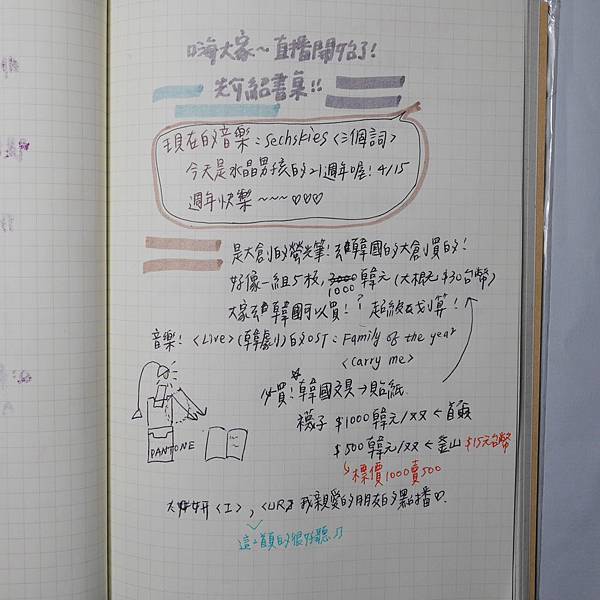 嗨大家～直播開始了!
先介紹書桌!!
現在的音樂：Sechskies <三個詞>
今天是水晶男孩的21週年喔! 4/15
週年快樂～～～♡♡♡
是大創的螢光筆!去韓國的大創買的!
好像一組5枝, 1000韓元 (大概 $30台幣)
大家去韓國可以買! 超級划算!
音樂! <Live> (韓劇) 的OST: Family of the year
<Carry me>
必買! 韓國文具→貼紙
襪子 $1000韓元/双 ←首爾
$500韓元/双 ←釜山 $15元台幣
標價1000賣500
PANTONE
太妍<I>, <UR> 我親愛的朋友的點播♡
這首真的很好聽♫